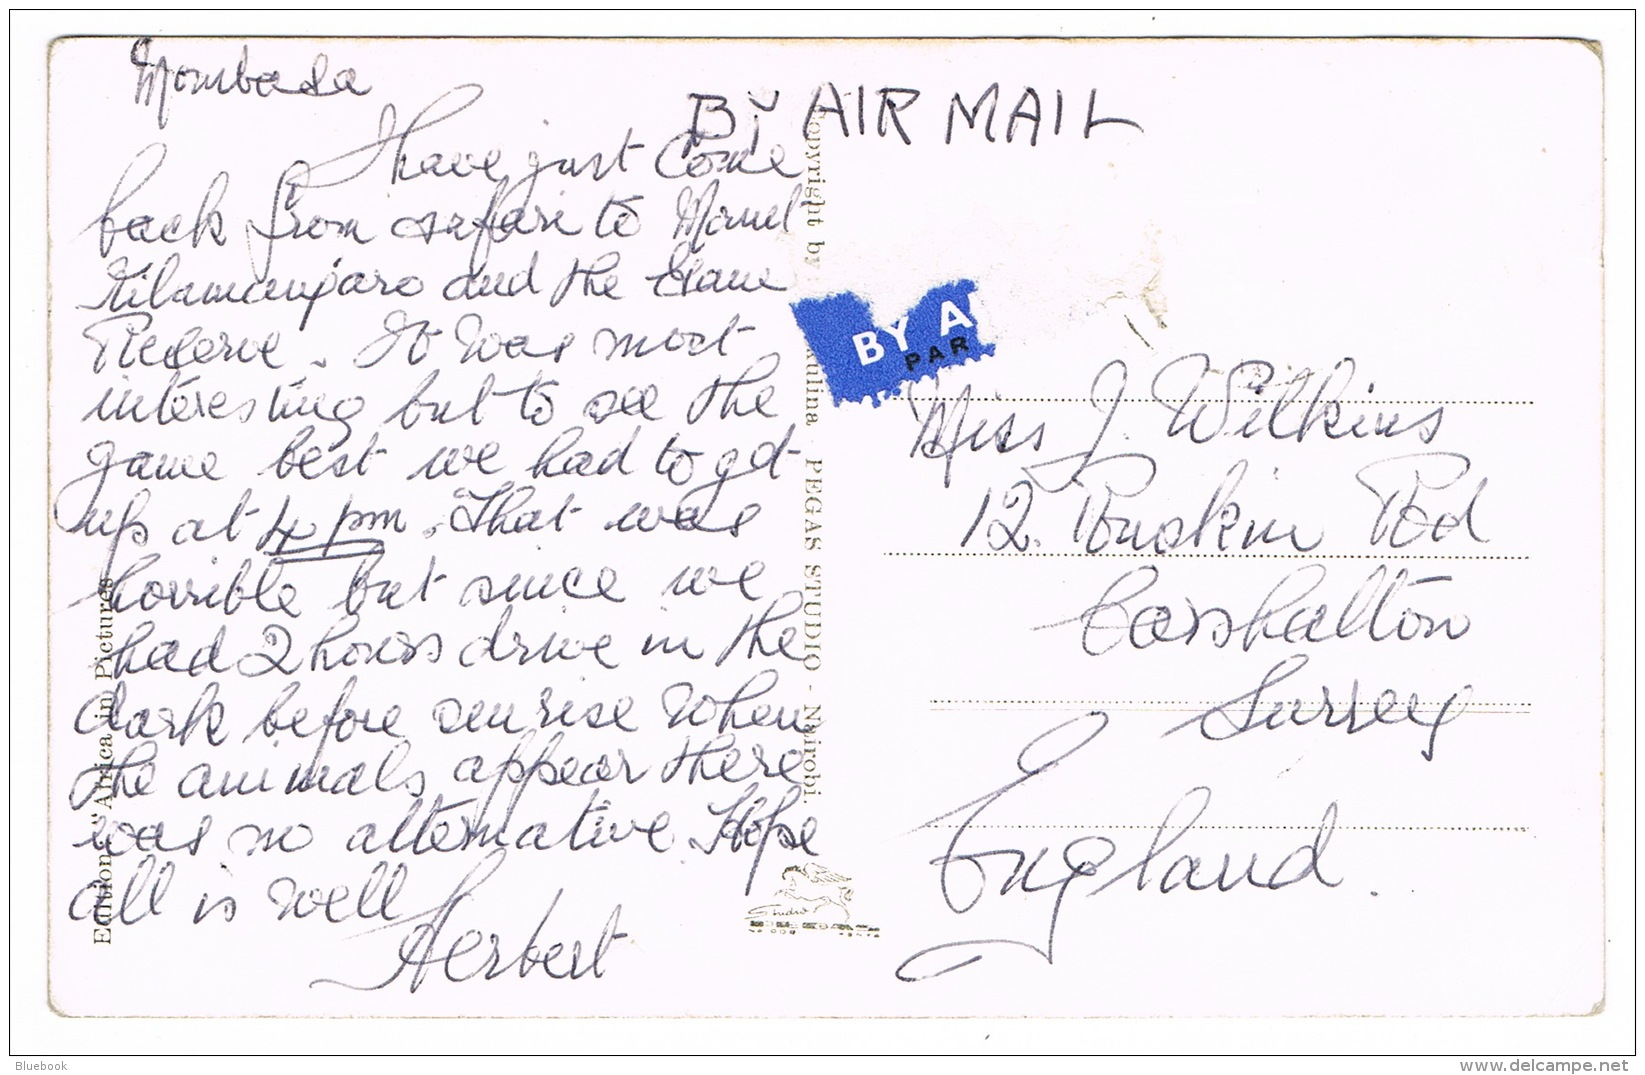 Mombasa
I have just come
back from safari to Mount
Kilamungaro and the Game
Reserve. It was most
interesting but to see the
game best we had to get
up at 4 pm. That was
horrible but since we
had 2 hours drive in the
dark before sunrise when
the animals appear there
was no alternative. Hope
all is well
Herbert
BY AIR MAIL
BY A
PAR
Miss J. Wilkins
12. Ruskin Rd
Carshalton
Surrey
England.
Copyright by
kulina PEGAS STUDIO - Nairobi.
Edition: "Africa in Pictures"
Studio
Bluebook
delcampe.net